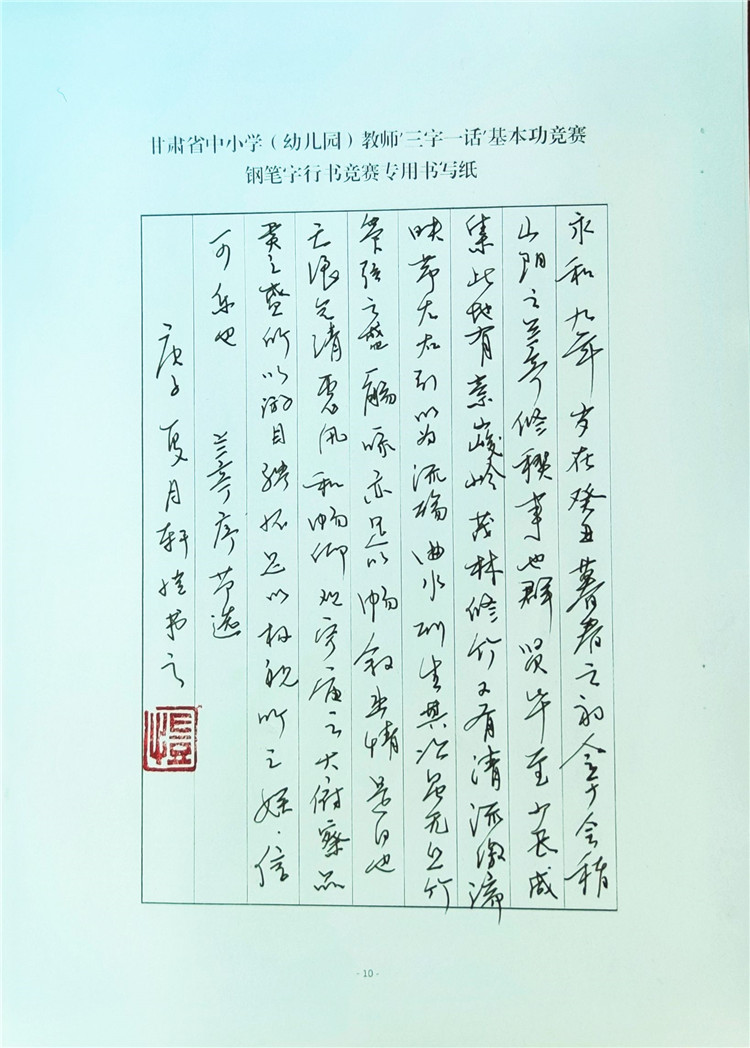 甘肃省中小学（幼儿园）教师‘三字一话’基本功竞赛
钢笔字行书竞赛专用书写纸
永和九年岁在癸丑暮春之初会于会稽
山阴之兰亭修禊事也群贤毕至少长咸
集此地有崇山峻岭茂林修竹又有清流激湍
映带左右引以为流觞曲水列坐其次虽无丝竹
管弦之盛一觞一咏亦足以畅叙幽情是日也
天浪气清惠风和畅仰观宇宙之大俯察品
类之盛所以游目骋怀足以极视听之娱信
可乐也 兰亭序节选
庚子夏月轩恺书之
恺
- 10 -